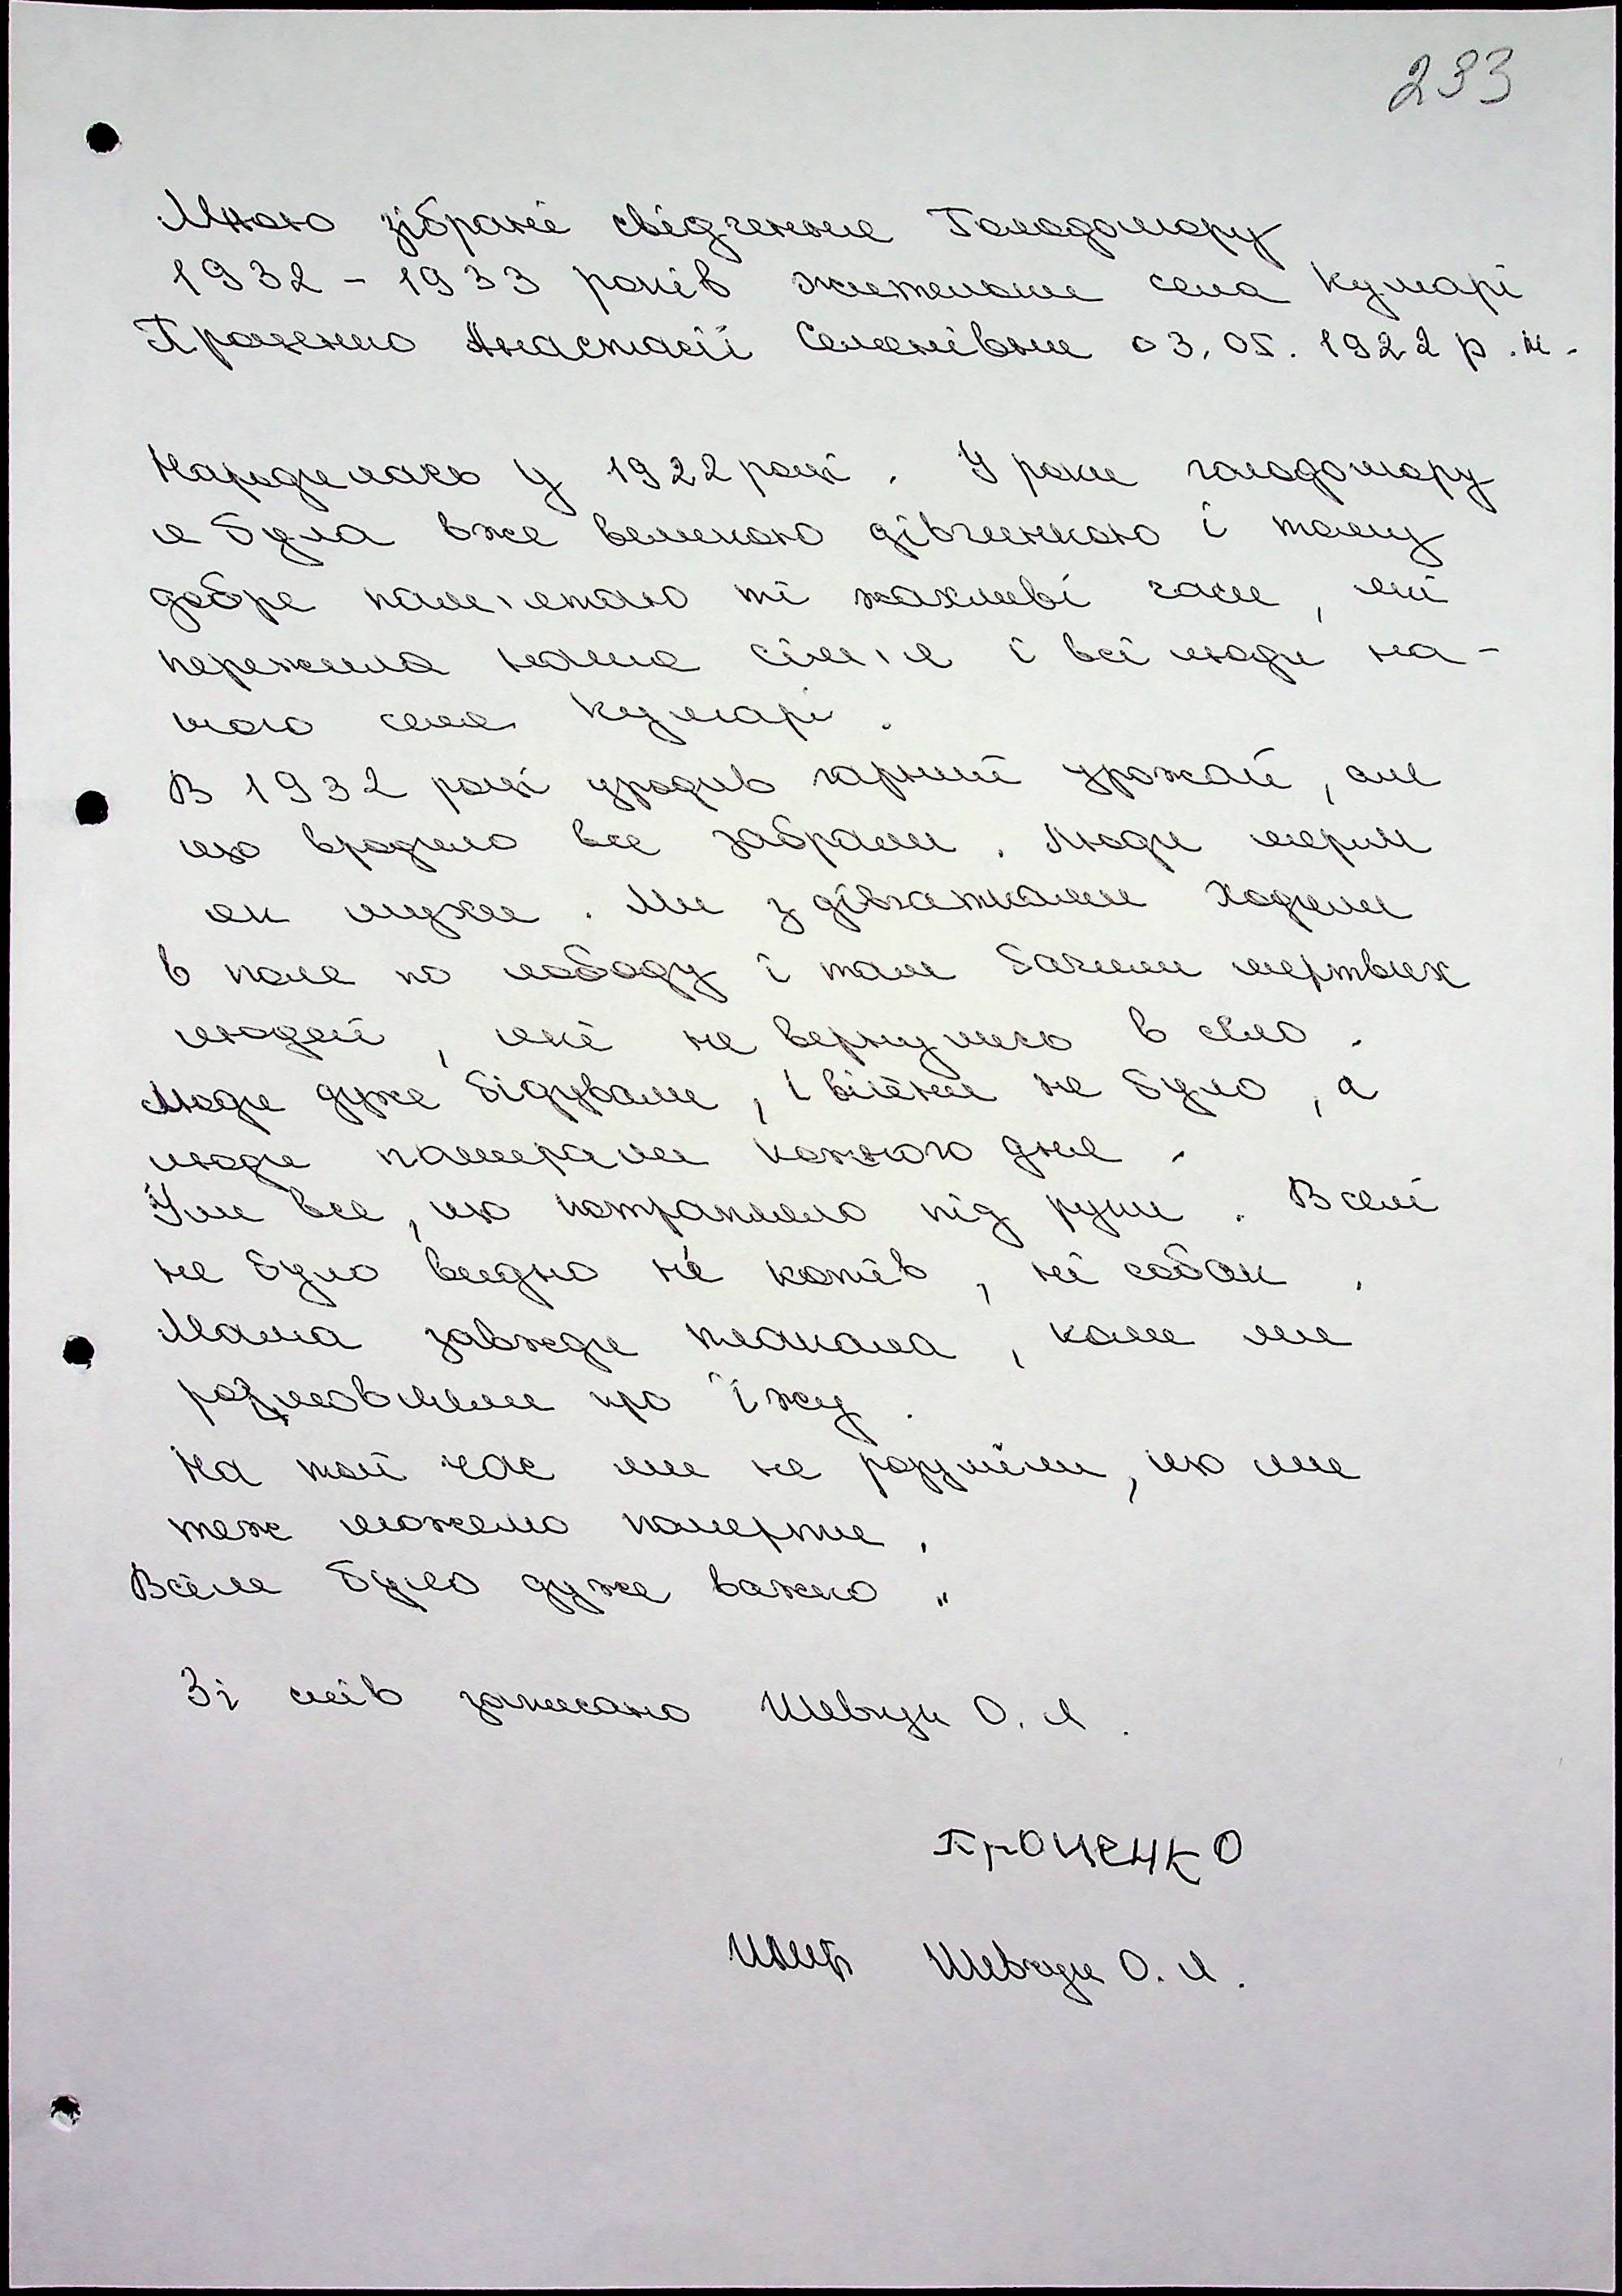 233
Мною зібрані свідчення Голодомору
1932 - 1933 років жительки села Кумарі
Проценко Анастасії Семенівни 03.05.1922 р.н.
Народилась у 1922 році. У роки голодомору
я була вже великою дівчинкою і тому
добре пам'ятаю ті жахливі часи, які
пережила наша сім'я і всі люди на-
шого села Кумарі.
В 1932 році уродив гарний урожай, але
що вродило все забрали. Люди мерли
як мухи. Ми з дівчатками ходили
в поле по лободу і там бачили мертвих
людей, які не вернулись в село.
Люди дуже бідували, і війни не було, а
люди помирали кожного дня.
Їли все, що потрапляло під руки. В селі
не було видно ні котів, ні собак.
Мама завжди плакала, коли ми
розмовляли про їжу.
На той час ми не розуміли, що ми
теж можемо померти.
Всім було дуже важко.
Зі слів записано Шевчук О. Л.
ПРОЦЕНКО
Шевчук О. Л.